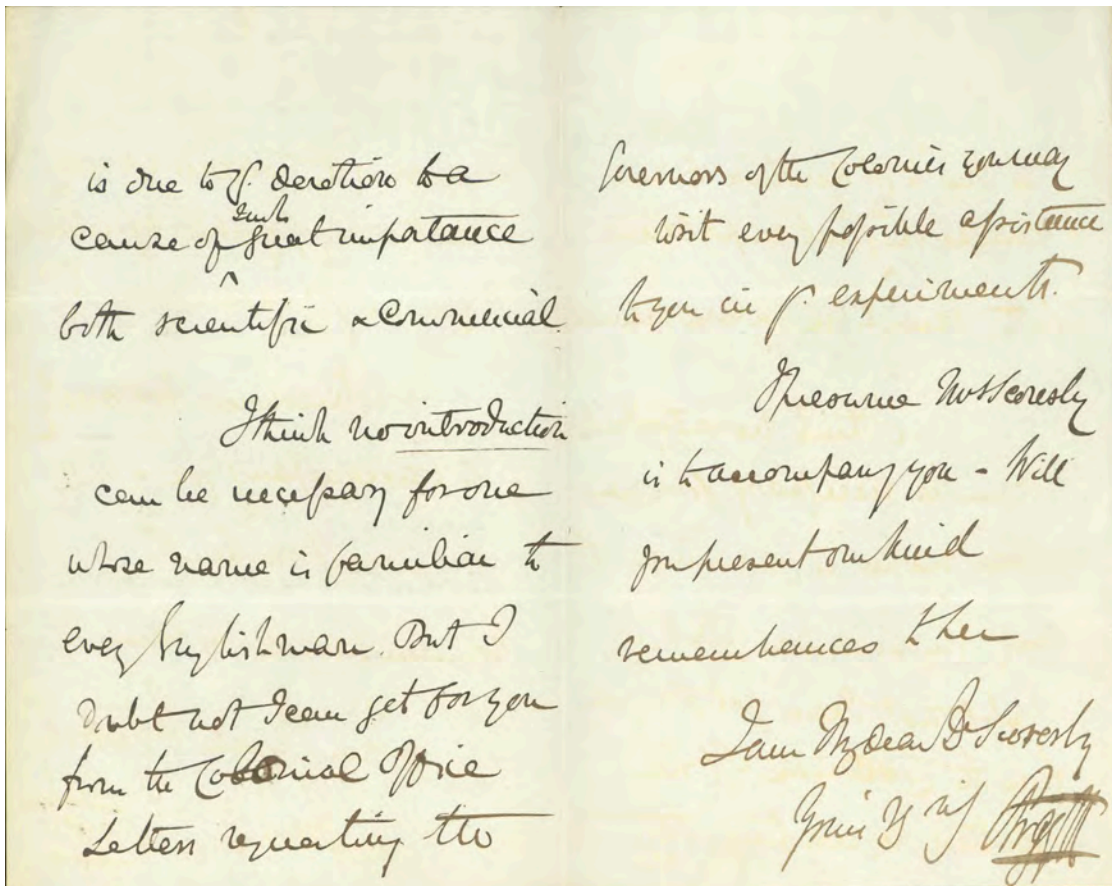 is due to yr. devotion to a
such
cause of ^ great importance
both scientific & Commercial.
I think no introduction
can be necessary for one
whose name is familiar to
every Englishman. But I
doubt not I can get for you
from the Colonial Office
Letters requesting the
Governors of the Colonies you may
visit every possible assistance
to you in yr. experiments.
I presume Mrs Scoresby
is to accompany you - Will
you present our kind
remembrances to her
I am My dear Dr Scoresby
Yours